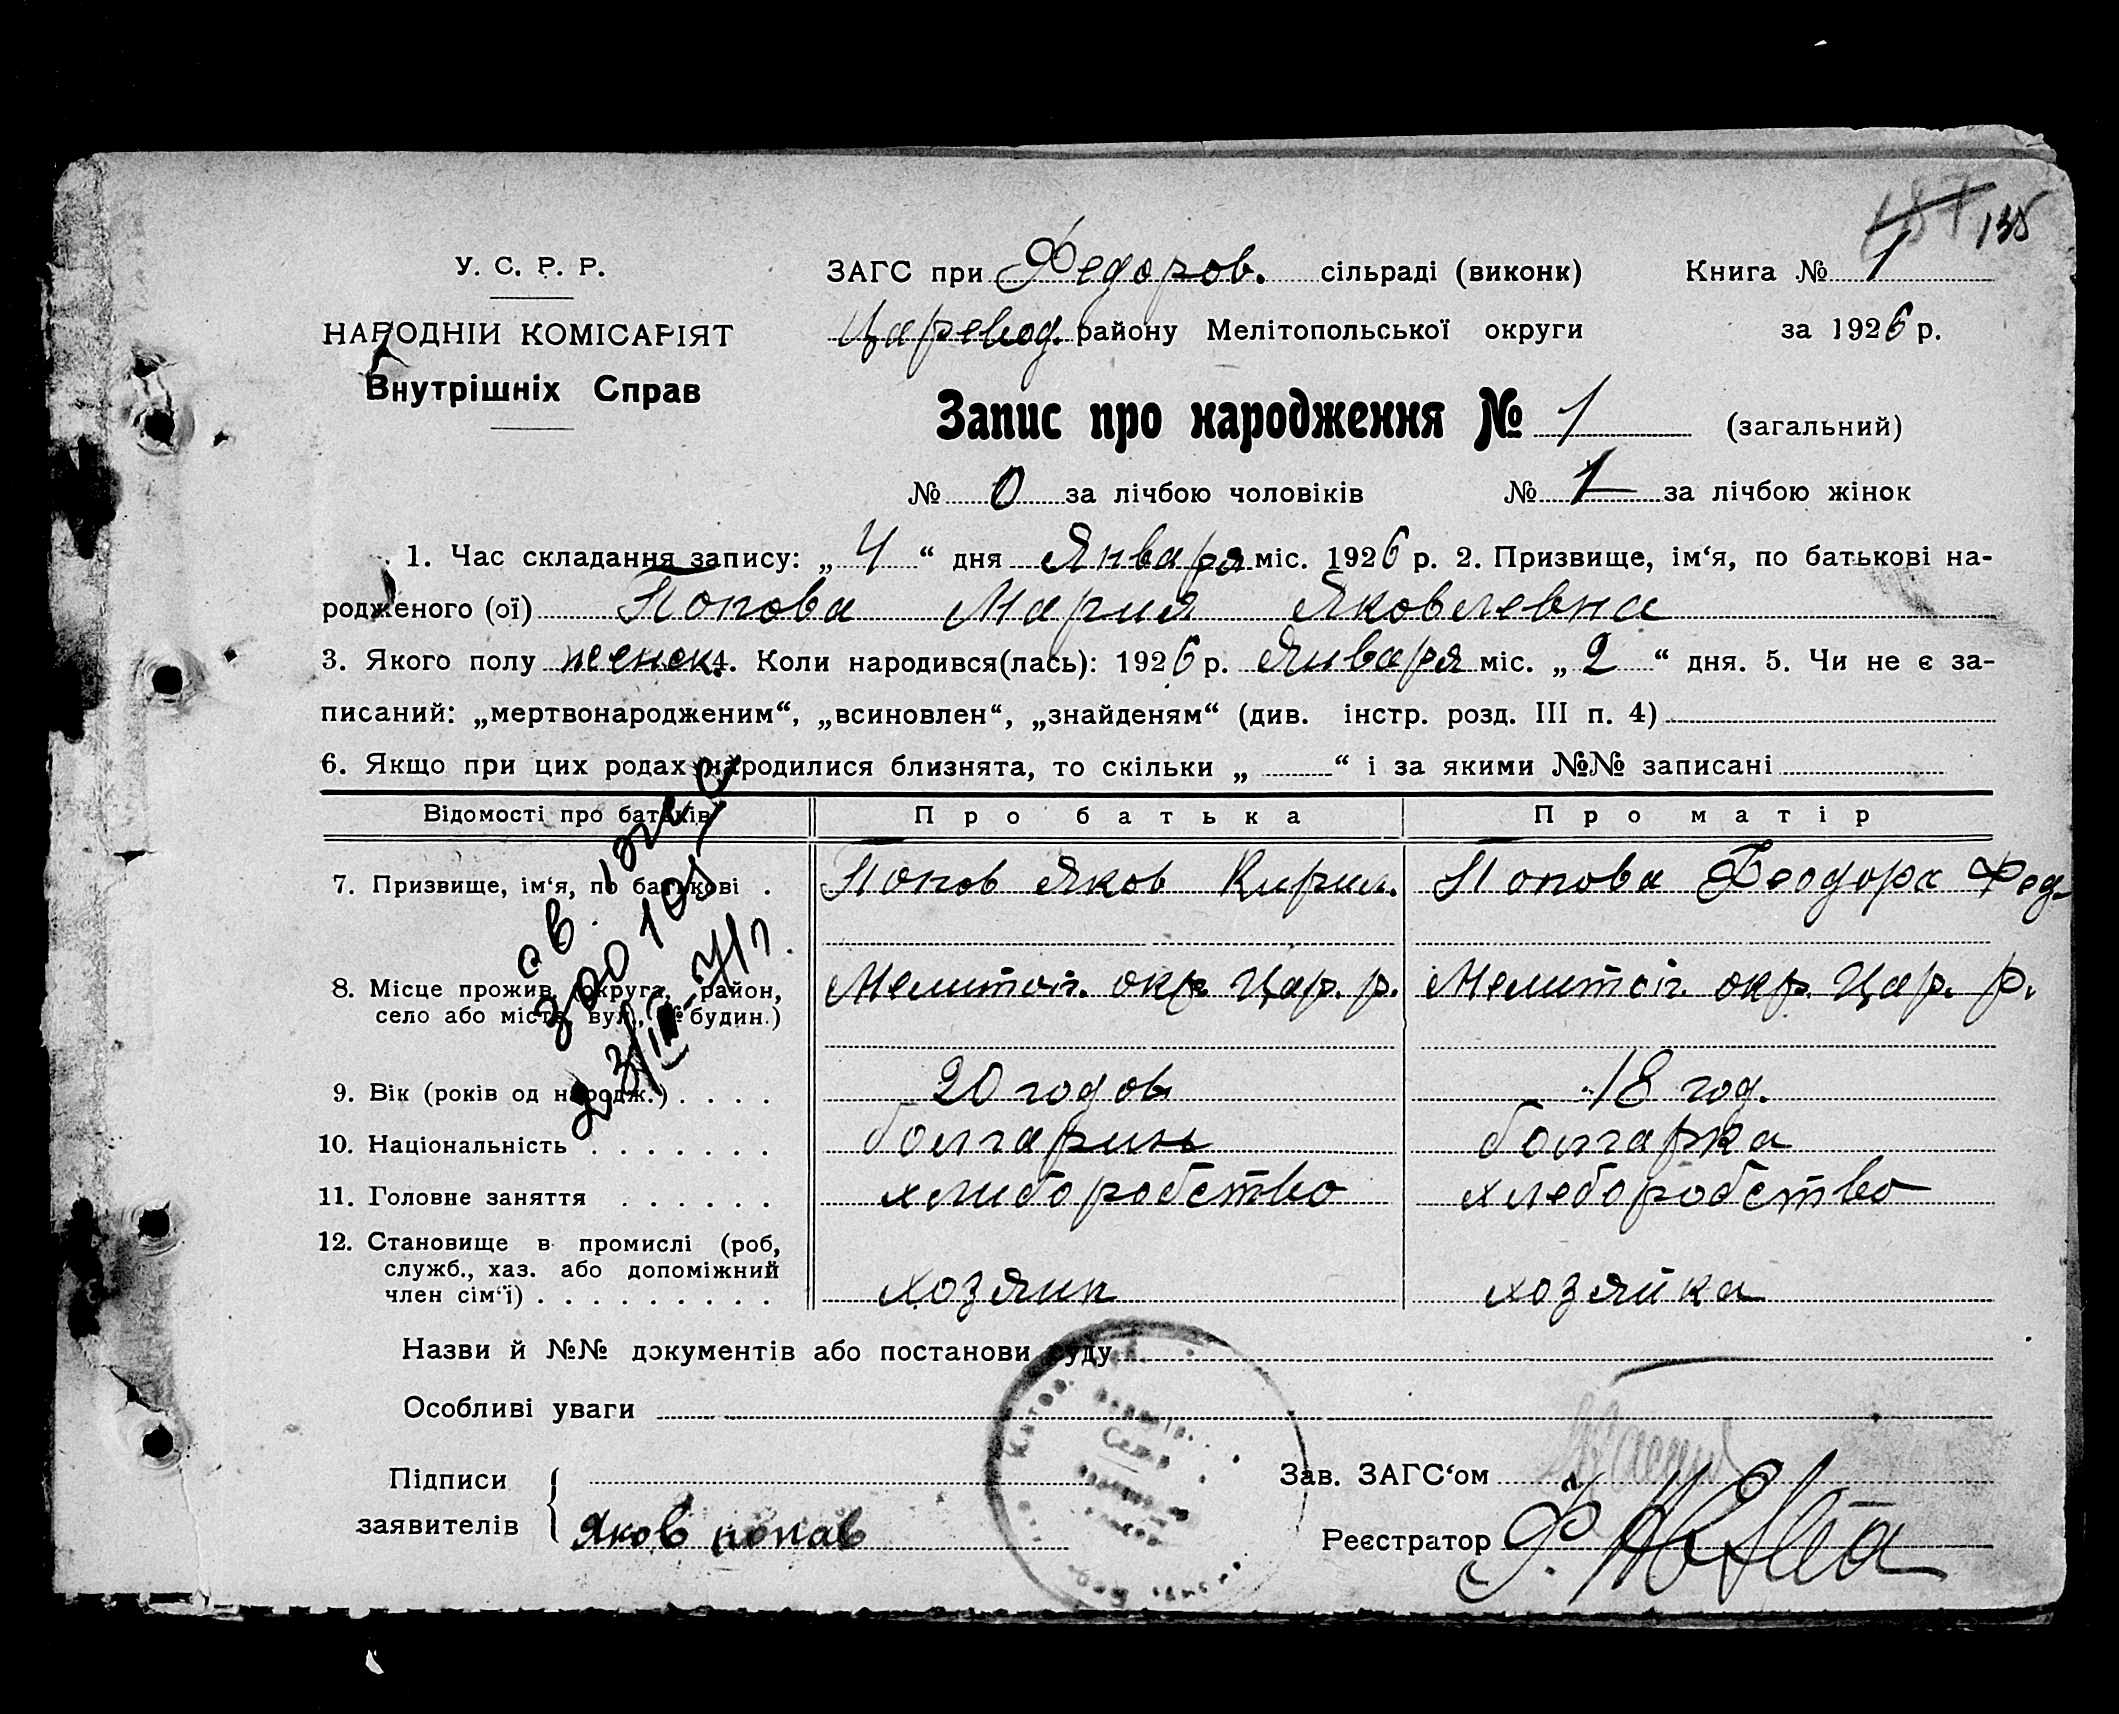 135
У. С. Р. Р.
НАРОДНІЙ КОМІСАРІЯТ
Внутрішніх Справ
ЗАГС при Федоров. сільраді (виконк) Книга № 1
Царевод. району Мелітопольської округи за 1926 р.
Запис про народження № 1 (загальний)
№ 0 за лічбою чоловіків № 1 за лічбою жінок
1. Час складання запису: „ 4 “ дня Января міс. 1926 р. 2. Призвище, ім‘я, по батькові на-
родженого (ої) Попова Мария Яковлевна
3. Якого полу женск. 4. Коли народився(лась): 1926 р. Января міс. „ 2 “ дня. 5. Чи не є за-
писаний: „мертвонародженим“, „всиновлен“, „знайденям“ (див. інстр. розд. III п. 4)
6. Якщо при цих родах народилися близнята, то скільки „ “ і за якими №№ записані
Відомості про батьків Про батька Про матір
7. Призвище, ім‘я, по батькові . Попов Яков Кирил. Попова Феодора Фед.
8. Місце прожив. (округа, район, Мелитоп. окр. Цар. р. Мелитоп. окр. Цар. р.
село або місто, вул., № будин.)
9. Вік (років од народж.) . . . . 20 годов 18 год.
10. Національність . . . . . . . болгаринь болгарка
11. Головне заняття . . . . . . хлиборобство хлеборобство
12. Становище в промислі (роб,
служб., хаз. або допоміжний
член сім‘ї) . . . . . . . . . хозяин хозяйка
Назви й №№ документів або постанови суду
Особливі уваги
Підписи
Зав. ЗАГС‘ом
заявителів Яков попав
Реєстратор